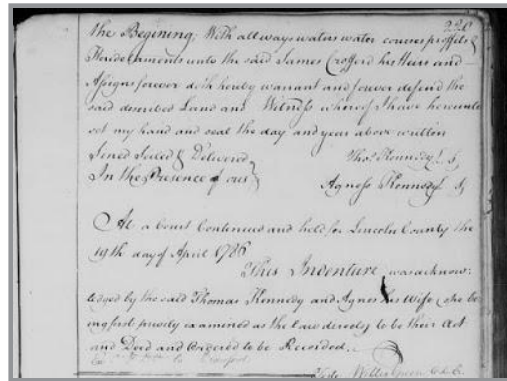 220
the Begining With all ways waters water courses proffits &
Heridetaments unto the said James Crofferd his Heirs and
Assigns forever doth hereby warrant and forever defend the
said described Land and Witness whereof I have hereunto
set my hand and seal the day and year above written
Sined Seiled & Delivered Thos. Kennedy
In the Presence of ous Agness Kennedy
At a Court Continued and held for Lincoln County the
19th day of April 1786
This Indenture was acknow:
ledged by the said Thomas Kennedy and Agnes his Wife (she be
ing first prively examined as the law directs) to be their Act
and Deed and Ordered to be Recorded.
Teste Willis Green C.L.C.